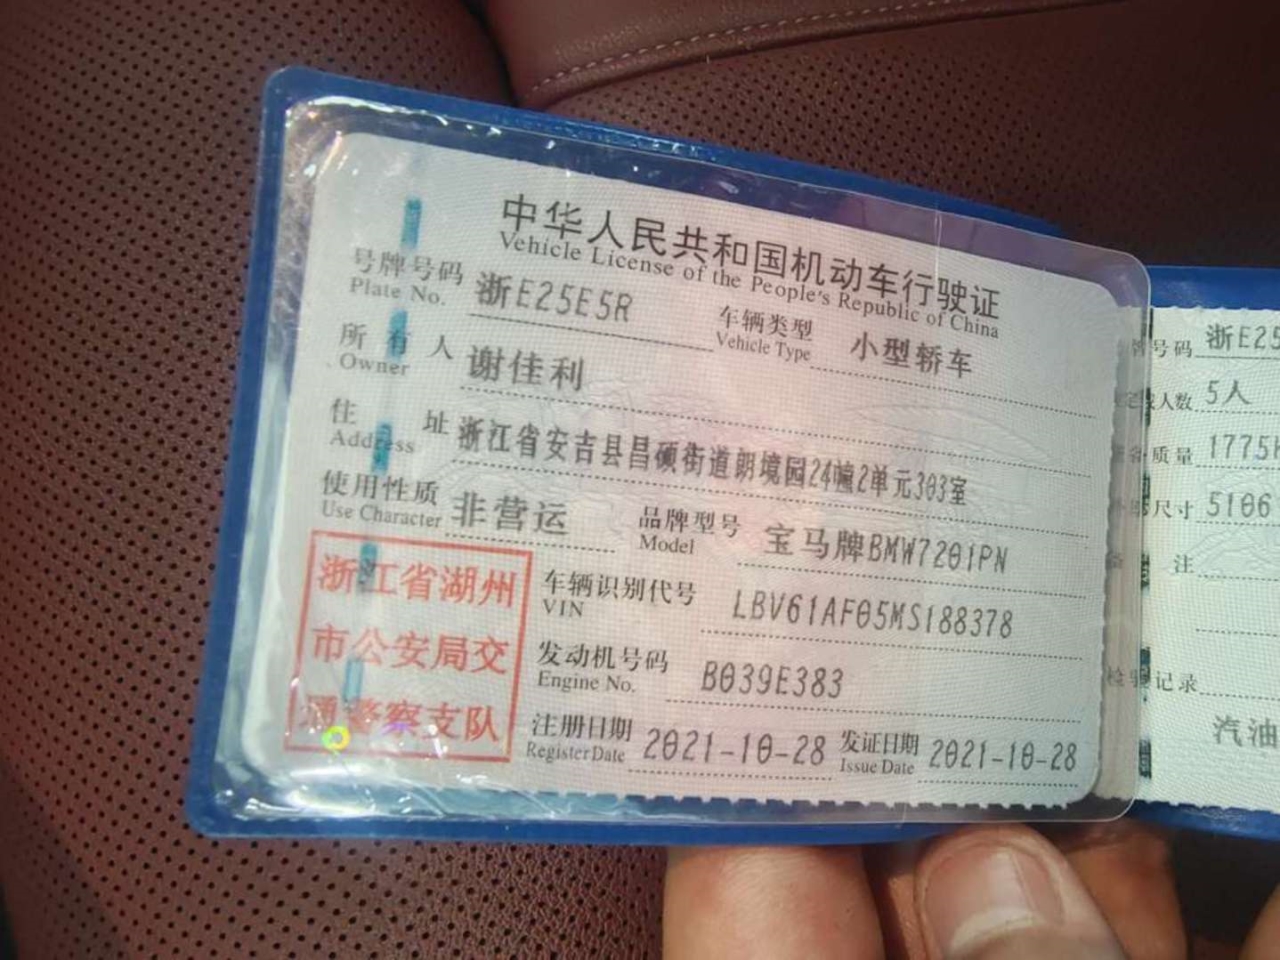 中华人民共和国机动车行驶证
Vehicle License of the People's Republic of China
号牌号码 浙E25E5R 车辆类型 小型轿车
Plate No. Vehicle Type
所有人 谢佳利
Owner
住址 浙江省安吉县昌硕街道朗境园24幢2单元303室
Address
使用性质 非营运 品牌型号 宝马牌BMW7201PN
Use Character Model
浙江省湖州
市公安局交
通警察支队
车辆识别代号 LBV61AF05MS188378
VIN
发动机号码 B039E383
Engine No.
注册日期 2021-10-28 发证日期 2021-10-28
Register Date Issue Date
号码 浙E25
人数 5人
质量 1775
尺寸 5106
注
记录
汽油